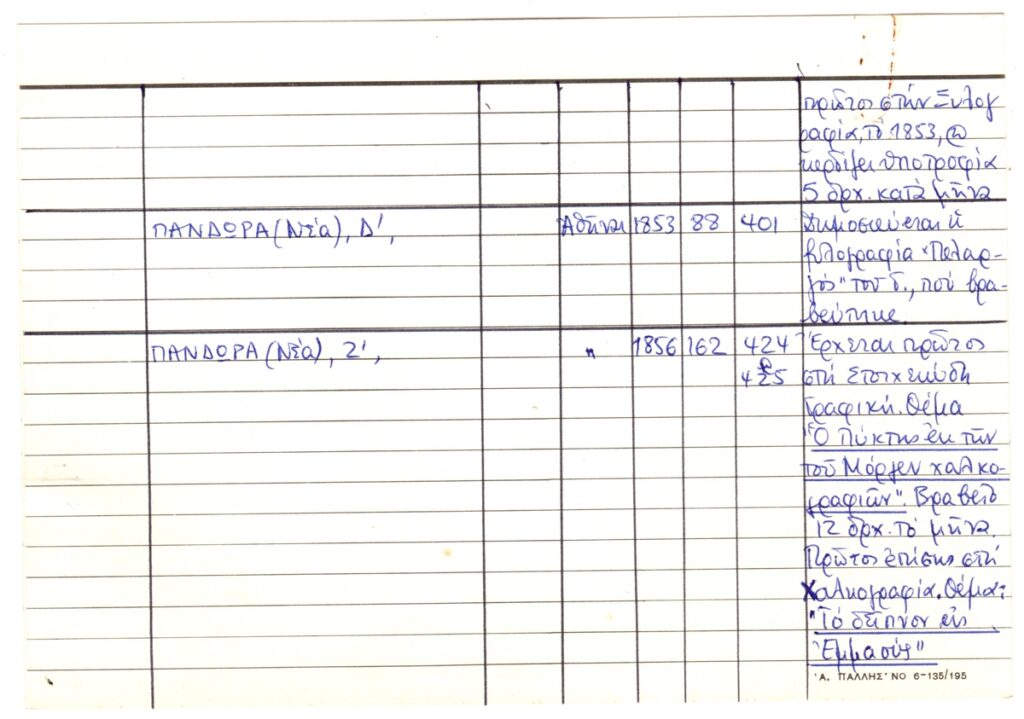 πρῶτος στήν Ξυλογ
ραφία, τό 1853, 
κερδίζει ὑποτροφία
5 δρχ. κατά μῆνα
ΠΑΝΔΩΡΑ (Νέα), Δ', Ἀθῆναι 1853 88 401 Δημοσιεύεται ἡ
ξυλογραφία "Πελαρ-
γός" τοῦ Γ., πού βρα-
βεύτηκε.
ΠΑΝΔΩΡΑ (Νέα), Ζ', " 1856 162 424 Ἔρχεται πρῶτος
425 στή Στοιχειώδη
Γραφική. Θέμα
"Ὁ Πύκτης ἐκ τῶν
τοῦ Μόργεν χαλκο-
γραφιῶν". Βραβεῖο
12 δρχ. τό μῆνα.
Πρῶτος ἐπίσης στή
Χαλκογραφία. Θέμα:
"Τό δεῖπνον εἰς
Ἐμμαούς"
'Α. ΠΑΛΛΗΣ' ΝΟ 6-135/195